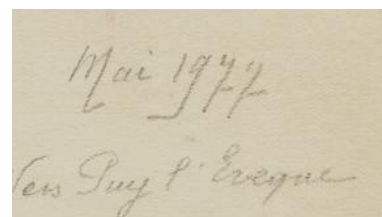 Mai 1977
Vers Puy l'Eveque